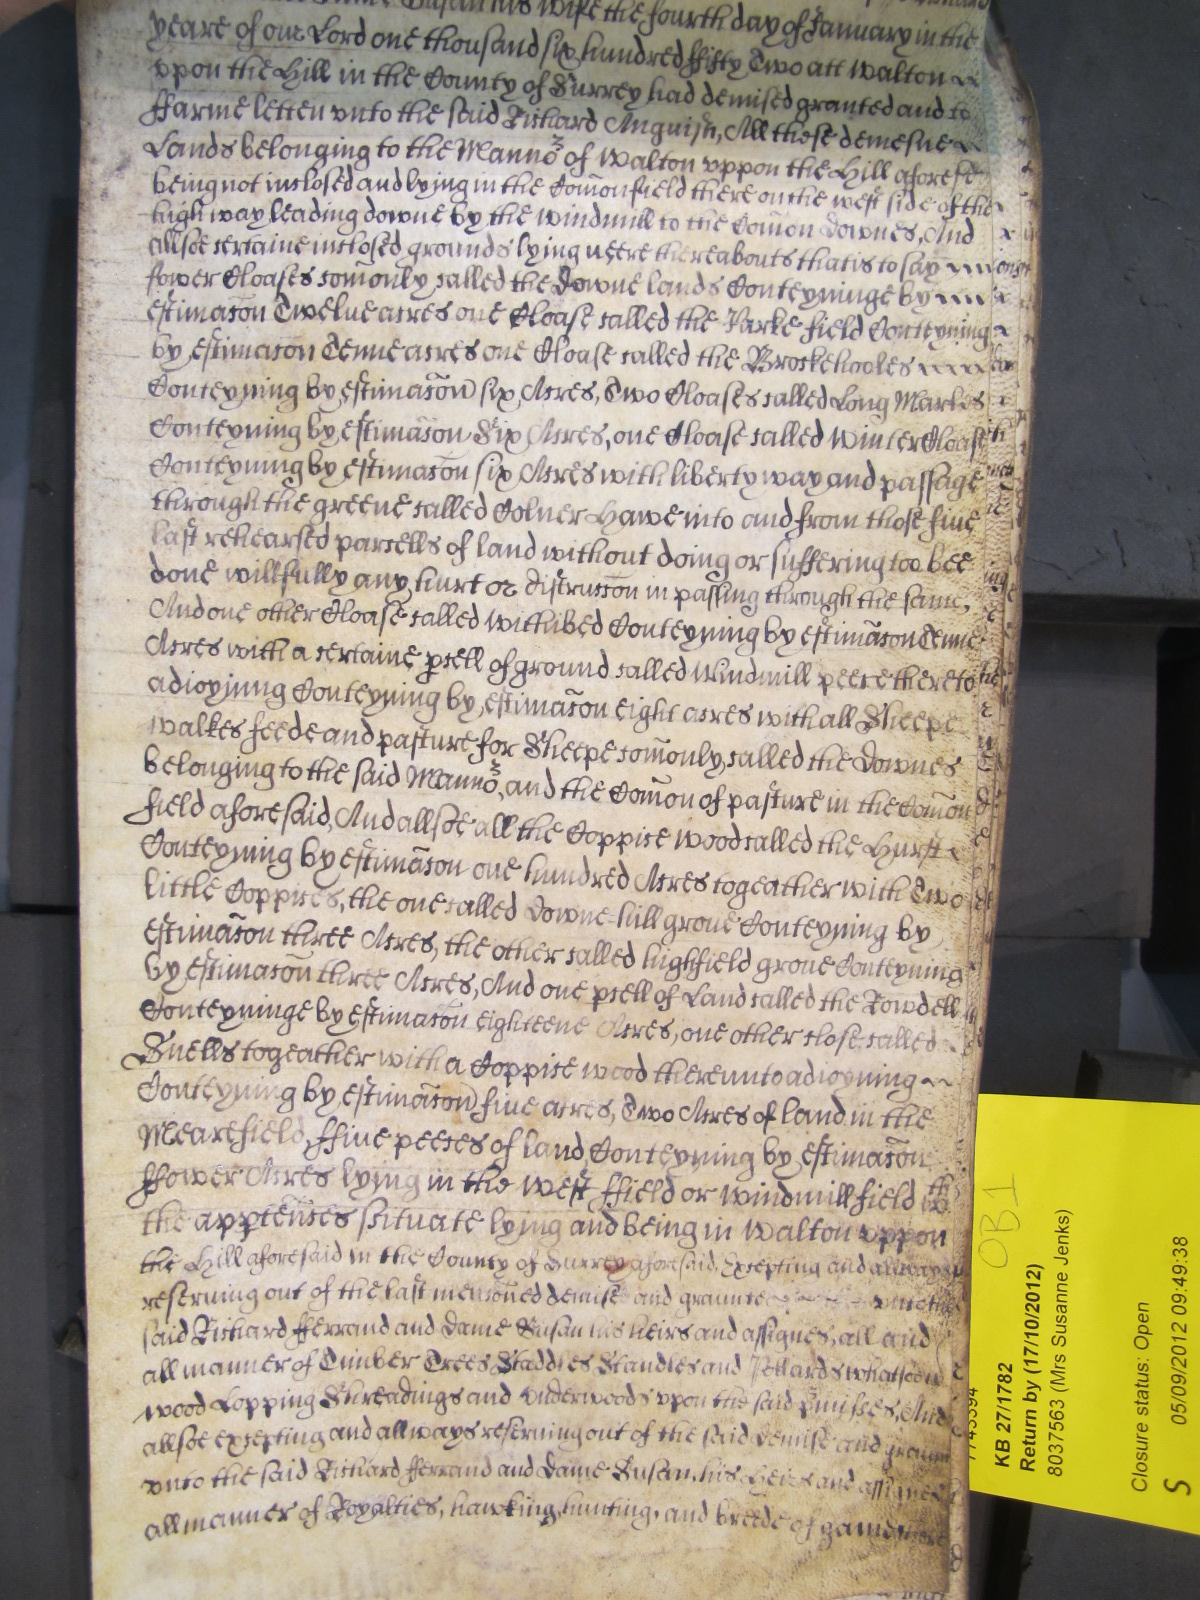 Susan his wife the fourth day of January in the
yeare of our Lord one thousand six hundred fifty Two att Walton
vpon the Hill in the County of Surrey had demised granted and to
ffarme letten vnto the said Richard Anguish, All those demesne
Lands belonging to the Manno^r of Walton vppon the Hill aforesd
being not inclosed and lying in the Com̃onfield there on the west side of the
high way leading downe by the windmill to the Com̃on Downes, And
allsoe certaine inclosed grounds lying neere thereabouts that is to say
fower Cloases com̃only called the Downe lands Conteyninge by
estimac̃on Twelue acres one Cloase called the Parke field Conteyning
by estimac̃on Tenne acres one Cloase called the Brockehooles
Conteyning by estimac̃on six Acres, Two Cloases called Long Markes
Conteyning by estimac̃on Six Acres, one Cloase called Winter Cloase
Conteyning by estimac̃on six Acres with liberty way and passage
through the greene called Colner Hawe into and from those fiue
last rehearsed parcells of land without doing or suffering too bee
done willfully any hurt or distrucc̃on in passing through the same,
And one other Cloase called Withibed Conteyning by estimac̃on Tenne
Acres with a certaine pcell of ground called Windmill peece thereto
adioyning Conteyning by estimac̃on eight acres with all Sheepe
walkes feede and pasture for Sheepe com̃only called the Downes
belonging to the said Manno^r, and the Com̃on of pasture in the Com̃on
field aforesaid, And allsoe all the Coppice wood called the Hurst
Conteyning by estimac̃on one hundred Acres togeather with Two
little Coppices, the one called Downe-hill groue Conteyning by
estimac̃on three Acres, the other called highfield groue Conteyning
by estimac̃on three Acres, And one pcell of Land called the Rowdell
Conteyninge by estimac̃on eighteene Acres, one other close called
Snells togeather with a Coppice wood therevnto adioyning
Conteyning by estimac̃on fiue acres, Two Acres of land in the
Mearefield, ffiue peeces of land Conteyning by estimac̃on
ffower Acres lying in the West ffield or windmill field wth
the apptences scituate lying and being in Walton vppon
the Hill aforesaid in the County of Surrey aforesaid, Excepting and allwayes
reseruing out of the last menc̃oned demise and graunte vnto the
said Richard fferrand and Dame Susan his heirs and assignes, all and
all manner of Timber Trees Staddles Standles and Pollards whatsoeu
wood Lopping Shreadings and vnderwoods vpon the said Pmisses, And
allsoe excepting and allways reseruing out of the said Demise and graunt
vnto the said Richard fferrand and Dame Susan, his Heirs and assignes
all manner of Royalties, hawking, hunting, and breede of game
OB1
KB 27/1782
Return by (17/10/2012)
8037563 (Mrs Susanne Jenks)
Closure status: Open
05/09/2012 09:49:38
S